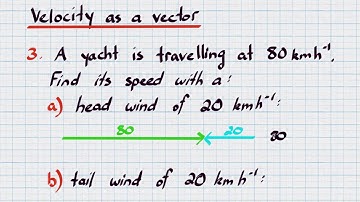 Velocity as a vector
3. A yacht is travelling at 80 kmh⁻¹.
Find its speed with a:
a) head wind of 20 kmh⁻¹:
80 20 80
b) tail wind of 20 kmh⁻¹: